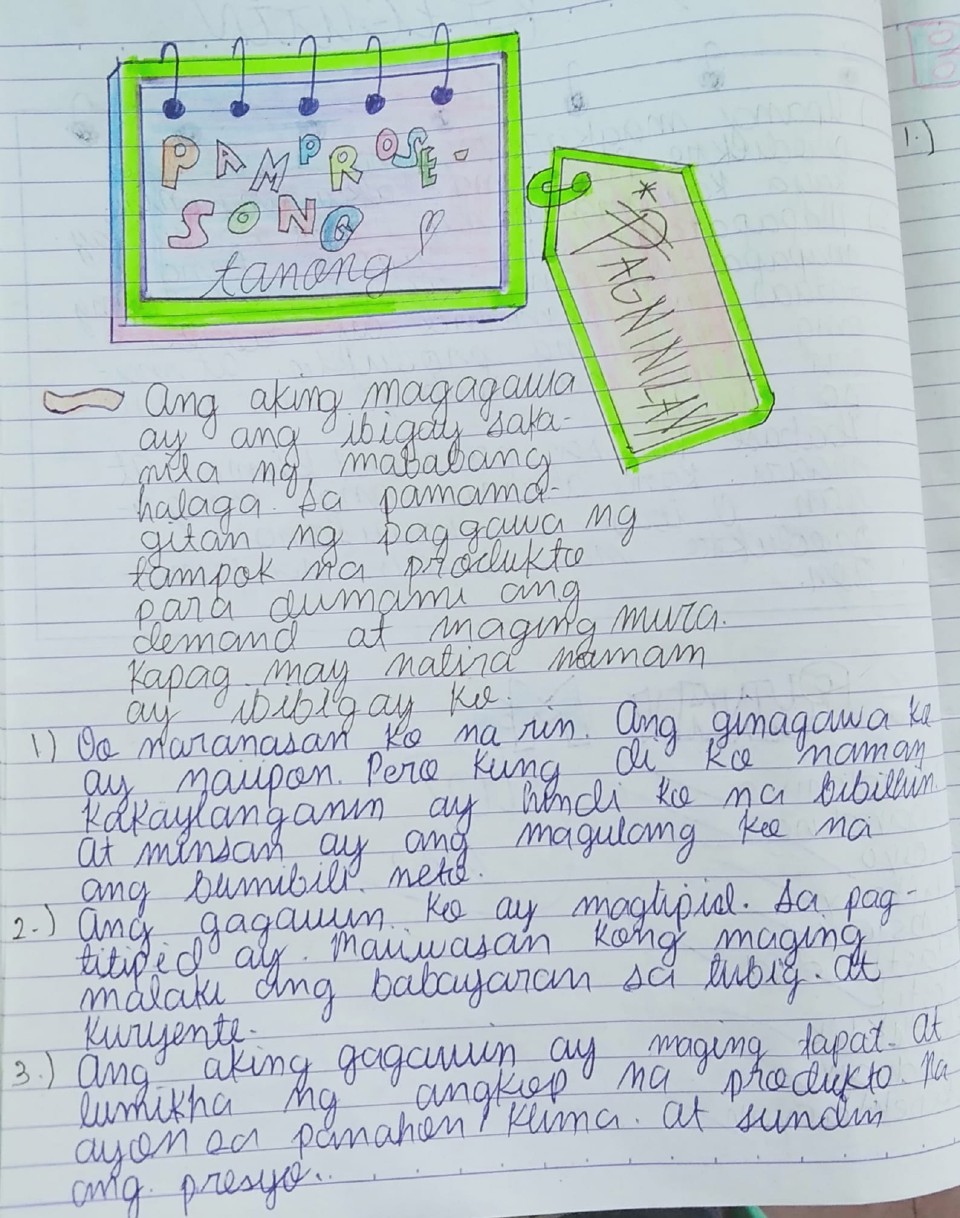 PAMPROSE-
SONG
tanong
*PAGNINILAN
Ang aking magagawa
ay ang ibigay saka-
nila ng mababang
halaga. sa pamama-
gitan ng paggawa ng
tampok na produkto
para dumami ang
demand at maging mura.
kapag may natira namam
ay ibibigay ko.
1) Oo naranasan ko na rin. Ang ginagawa ko
ay naiipon. Pero kung di ko naman
kakaylanganin ay hindi ko na bibilhin.
at minsan ay ang magulang ko na
ang bumibili neto.
2.) Ang gagawin ko ay magtipid. sa pag-
titipid ay. maiiwasan kong maging
malaki ang babayaran sa tubig. at
kuryente.
3.) Ang aking gagawin ay maging tapat. at
lumikha ng angkop na produkto. na
ayon sa panahon, klima. at sundin
ang presyo..
1.)